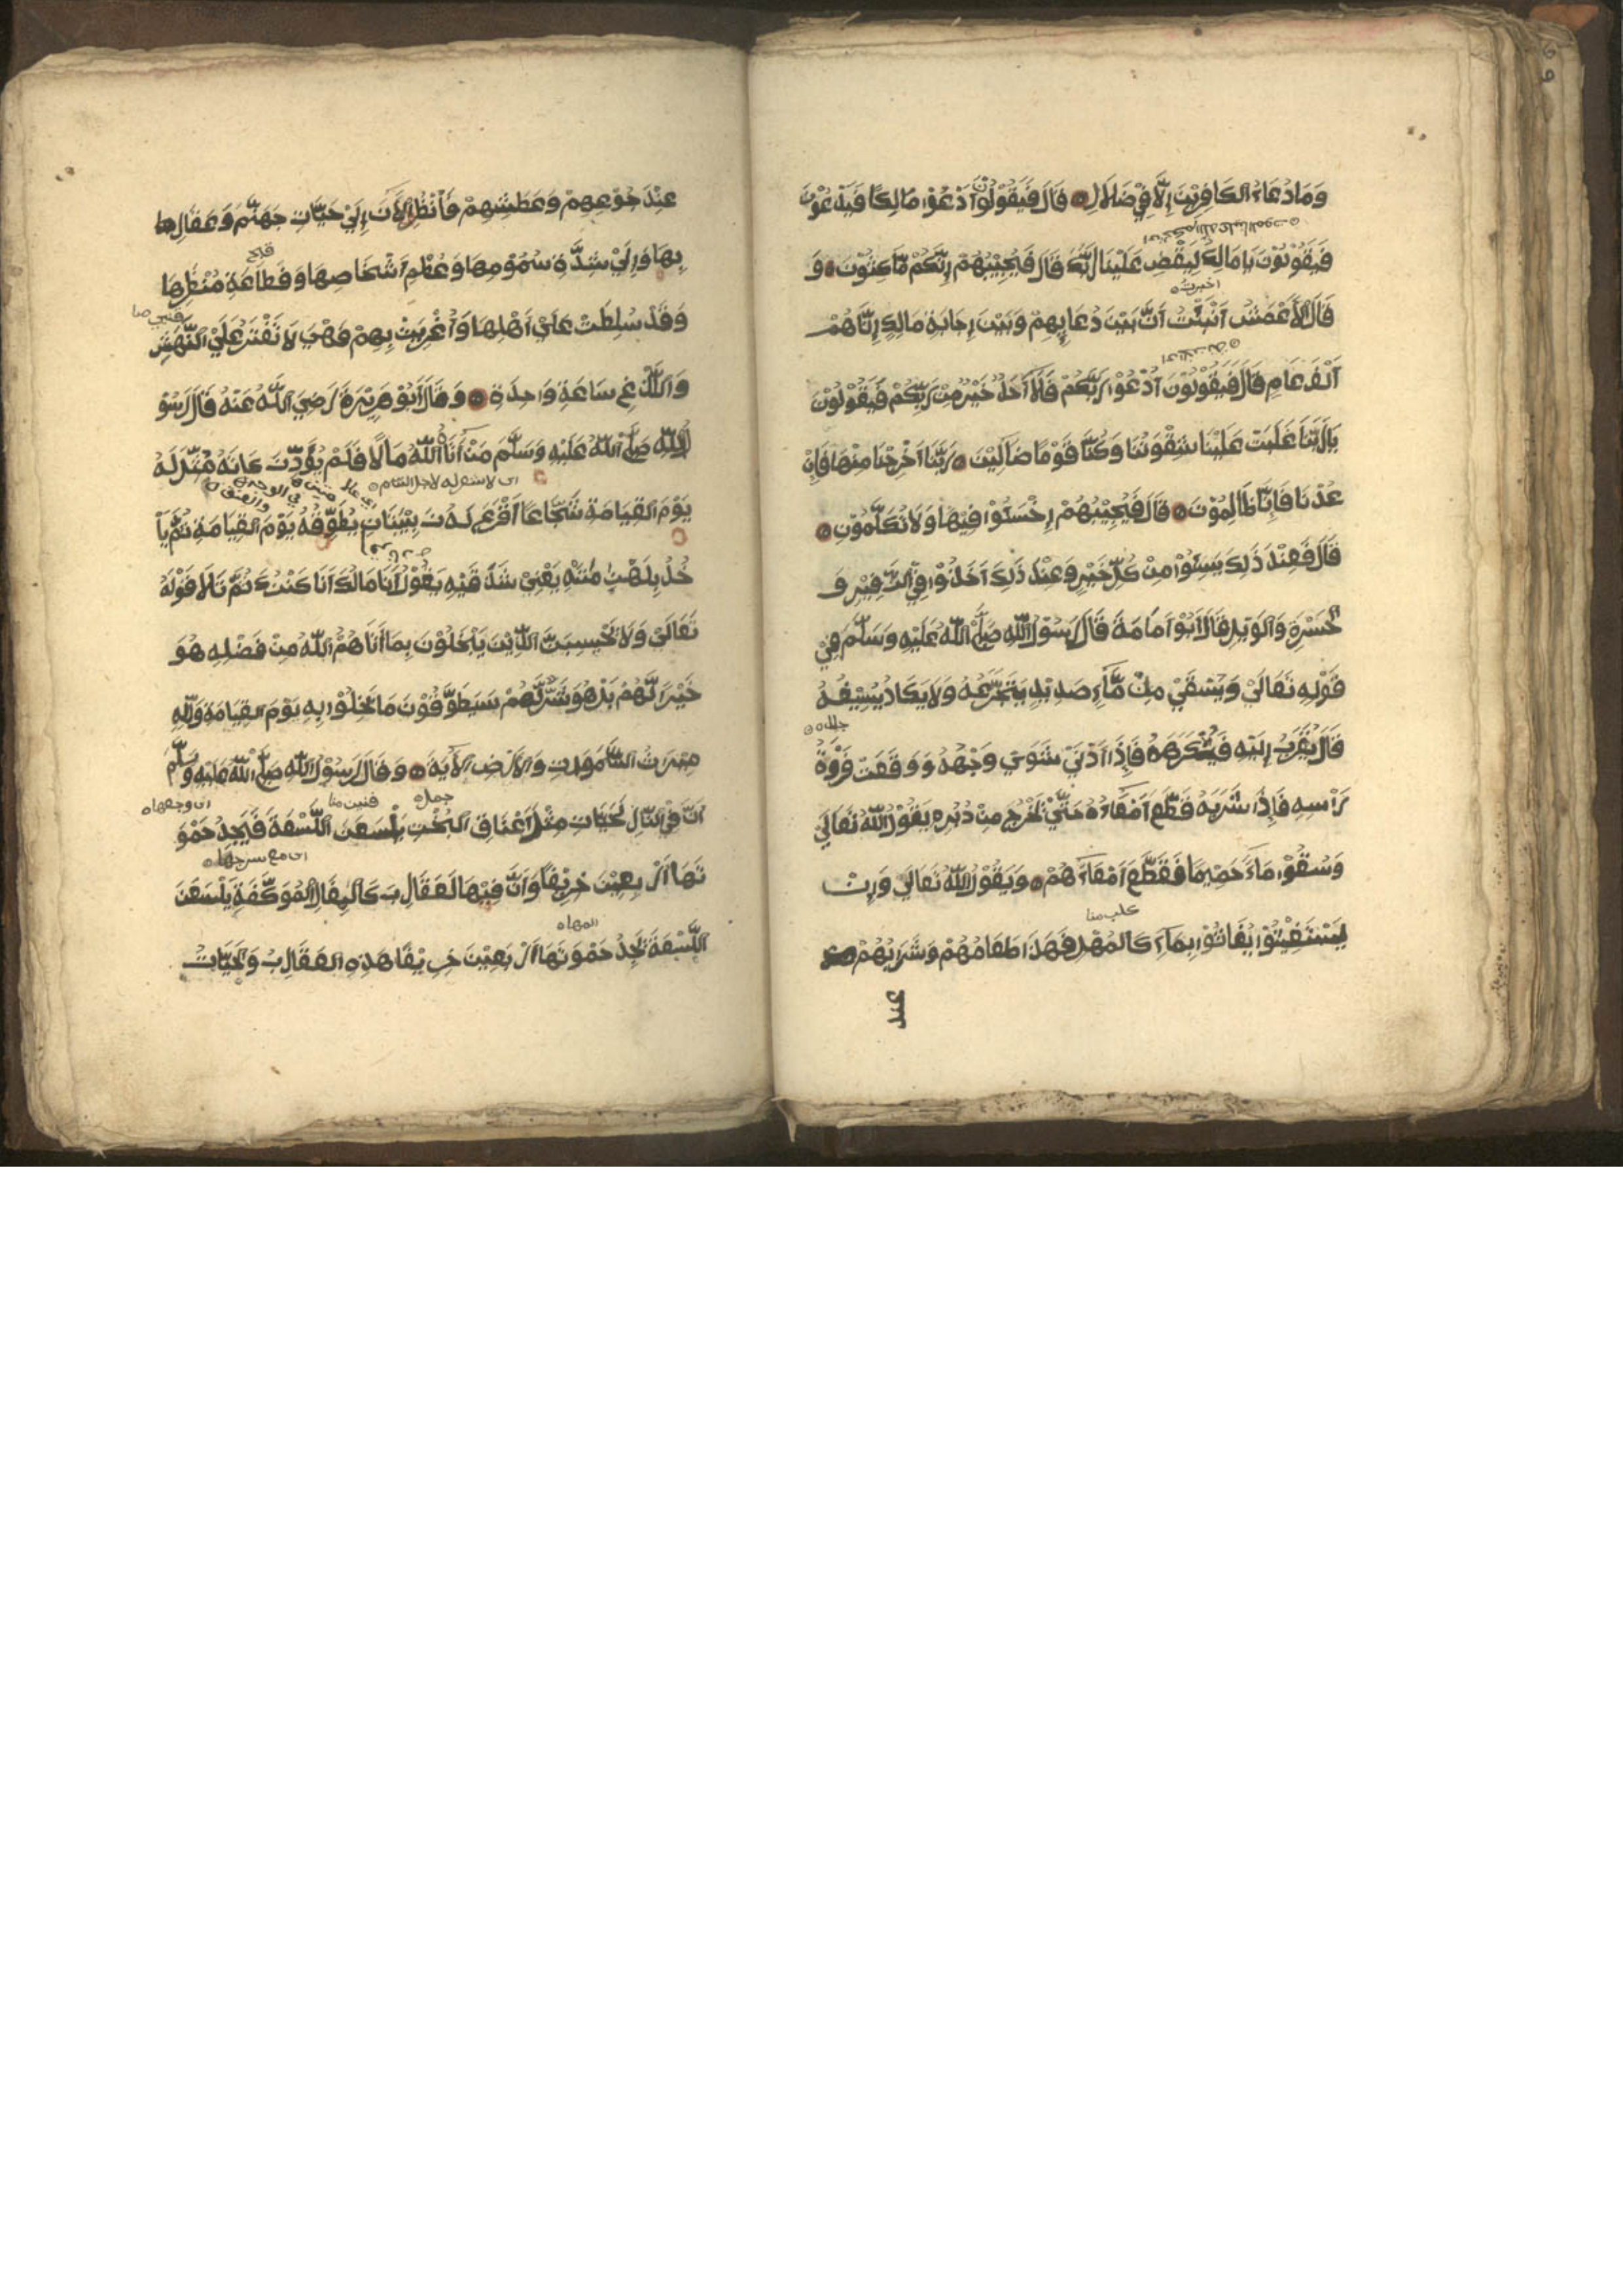 وَمَا دُعَاءُ الكَافِرِيْنَ اِلَّا فِيْ ضَلَالٍ قَالَ فَيَقُوْلُوْنَ اَدْعُوْا مَالِكًا فَيَدْعُوْنَ
فَيَقُوْلُوْنَ يَا مَالِكُ لِيَقْضِ عَلَيْنَا رَبُّكَ قَالَ فَيُجِيْبُهُمْ اِنَّكُمْ مَّاكِثُوْنَ وَ
اخبرت
قَالَ الْاَعْمَشُ اُنْبِئْتُ اَنَّ بَيْنَ دُعَايِهِمْ وَبَيْنَ اِجَابَةِ مَالِكٍ اِيَّاهُمْ
اَلْفَ عَامٍ قَالَ فَيَقُوْلُوْنَ اُدْعُوْا رَبَّكُمْ فَلَا اَحَدٌ خَيْرٌ مِنْ رَبِّكُمْ فَيَقُوْلُوْنَ
يَا رَبَّنَا غَلَبَتْ عَلَيْنَا شِقْوَتُنَا وَكُنَّا قَوْمًا ضَالِّيْنَ رَبَّنَا اَخْرِجْنَا مِنْهَا فَاِنْ
عُدْنَا فَاِنَّا ظَالِمُوْنَ قَالَ فَيُجِيْبُهُمْ اِخْسَئُوْا فِيْهَا وَلَا تُكَلِّمُوْنِ
قَالَ فَعِنْدَ ذَلِكَ يَئِسُوْا مِنْ كُلِّ خَيْرٍ وَعِنْدَ ذَلِكَ اَخَذُوْا فِي الزَّفِيْرِ وَ
الْحَسْرَةِ وَالْوَيْلِ قَالَ اَبُوْ اُمَامَةَ قَالَ رَسُوْلُ اللّٰهِ صَلَّى اللّٰهُ عَلَيْهِ وَسَلَّمَ فِيْ
قَوْلِهِ تَعَالَىْ وَيُسْقَىْ مِنْ مَّآءٍ صَدِيْدٍ يَتَجَرَّعُهُ وَلَا يَكَادُ يُسِيْغُهُ
جلده
قَالَ يُقَرَّبُ اِلَيْهِ فَيَتَكَرَّهُهُ فَاِذَا اُدْنِيَ شَوَي وَجْهَهُ وَوَقَعَتْ فَرْوَةُ
رَاْسِهِ فَاِذَا شَرِبَهُ قَطَّعَ اَمْعَاءَهُ حَتَّىْ يَخْرُجَ مِنْ دُبُرِهِ يَقُوْلُ اللّٰهُ تَعَالَي
وَسُقُوْا مَآءً حَمِيْمًا فَقَطَّعَ اَمْعَآءَهُمْ وَيَقُوْلُ اللّٰهُ تَعَالَي وَاِنْ
يَسْتَغِيْثُوْا يُغَاثُوْا بِمَآءٍ كَالْمُهْلِ فَهَذَا طَعَامُهُمْ وَشَرَابُهُمْ
عند
عِنْدَ جُوْعِهِمْ وَعَطَشِهِمْ فَانْظُرِ الْاٰنَ اِلَيْ حَيَّاتِ جَهَنَّمَ وَعَقَارِ
بِهَا وَاِلَيْ شِدَّةِ سُمُوْمِهَا وَعُظْمِ اَشْخَاصِهَا وَفَظَاعَةِ مَنْظَرِهَا
وَقَدْ سُلِطَتْ عَلَيْ اَهْلِهَا وَاُغْرِيَتْ بِهِمْ فَهْيَ لَا تَفْتَرُ عَلَيْ النَّهْشِ
وَاللَّدْغِ سَاعَةً وَاحِدَةً وَقَالَ اَبُوْ هُرَيْرَةَ رَضِيَ اللّٰهُ عَنْهُ قَالَ رَسُوْ
لُ اللّٰهِ صَلَّى اللّٰهُ عَلَيْهِ وَسَلَّمَ مَنْ اٰتَاهُ اللّٰهُ مَالًا فَلَمْ يُؤَدِّ زَكَاتَهُ مُثِّلَ لَهُ
يَوْمَ الْقِيَامَةِ شُجَاعًا اَقْرَعَ لَهُ زَبِيْبَتَانِ يُطَوِّقُهُ يَوْمَ الْقِيَامَةِ ثُمَّ يَاْ
خُذُ بِلَهْزِمَتَيْهِ يَعْنِيْ شَدْقَيْهِ يَقُوْلُ اَنَا مَالُكَ اَنَا كَنْزُكَ ثُمَّ تَلَا قَوْلَهُ
تَعَالَىْ وَلَا تَحْسِبَنَّ الَّذِيْنَ يَبْخَلُوْنَ بِمَا اٰتَاهُمُ اللّٰهُ مِنْ فَضْلِهِ هُوَ
خَيْرًا لَّهُمْ بَلْ هُوَ شَرٌّ لَّهُمْ سَيُطَوَّقُوْنَ مَا بَخِلُوْا بِهِ يَوْمَ الْقِيَامَةِ وَلِلّٰهِ
مِيْرَاثُ السَّمٰوَاتِ وَالْاَرْضِ الْاٰيَةَ وَقَالَ رَسُوْلُ اللّٰهِ صَلَّى اللّٰهُ عَلَيْهِ وَسَلَّمَ
جمل
اَنَّ فِي النَّارِ لَحَيَّاتٍ مِثْلَ اَعْنَاقِ الْبُخْتِ يَلْسَعْنَ اللَّسْعَةَ فَيَجِدُ حَمْوَ
تَهَا اَرْبَعِيْنَ خَرِيْفًا وَاَنَّ فِيْهَا لَعَقَارِبَ كَالْبِغَالِ الْمُوَكَّفَةِ يَلْسَعْنَ
المها
اللَّسْعَةَ يَجِدُ حَمْوَتَهَا اَرْبَعِيْنَ خَرِيْفًا هَذِهِ الْعَقَارِبُ وَالْحَيَّاتُ